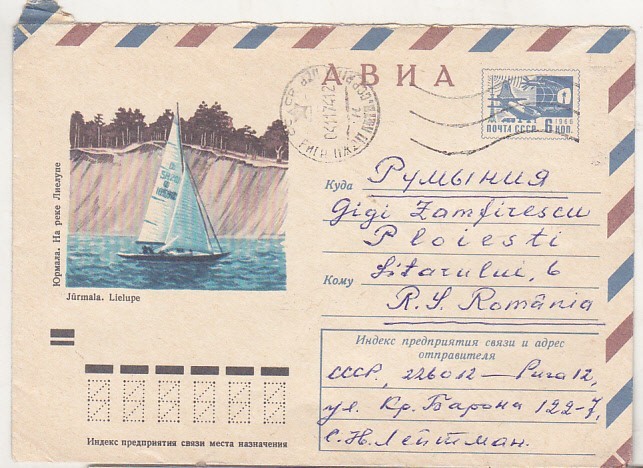 АВИА
ПОЧТА СССР 6 КОП.
1966
Куда Румыния
Gigi Zamfirescu
Ploiesti
Кому Sitarului, 6
R. S. România
Юрмала. На реке Лиелупе
Jūrmala. Lielupe
Индекс предприятия связи и адрес отправителя
СССР, 226012 — Рига 12,
ул. Кр. Барона 122-7,
С. Н. Лейтман.
Индекс предприятия связи места назначения